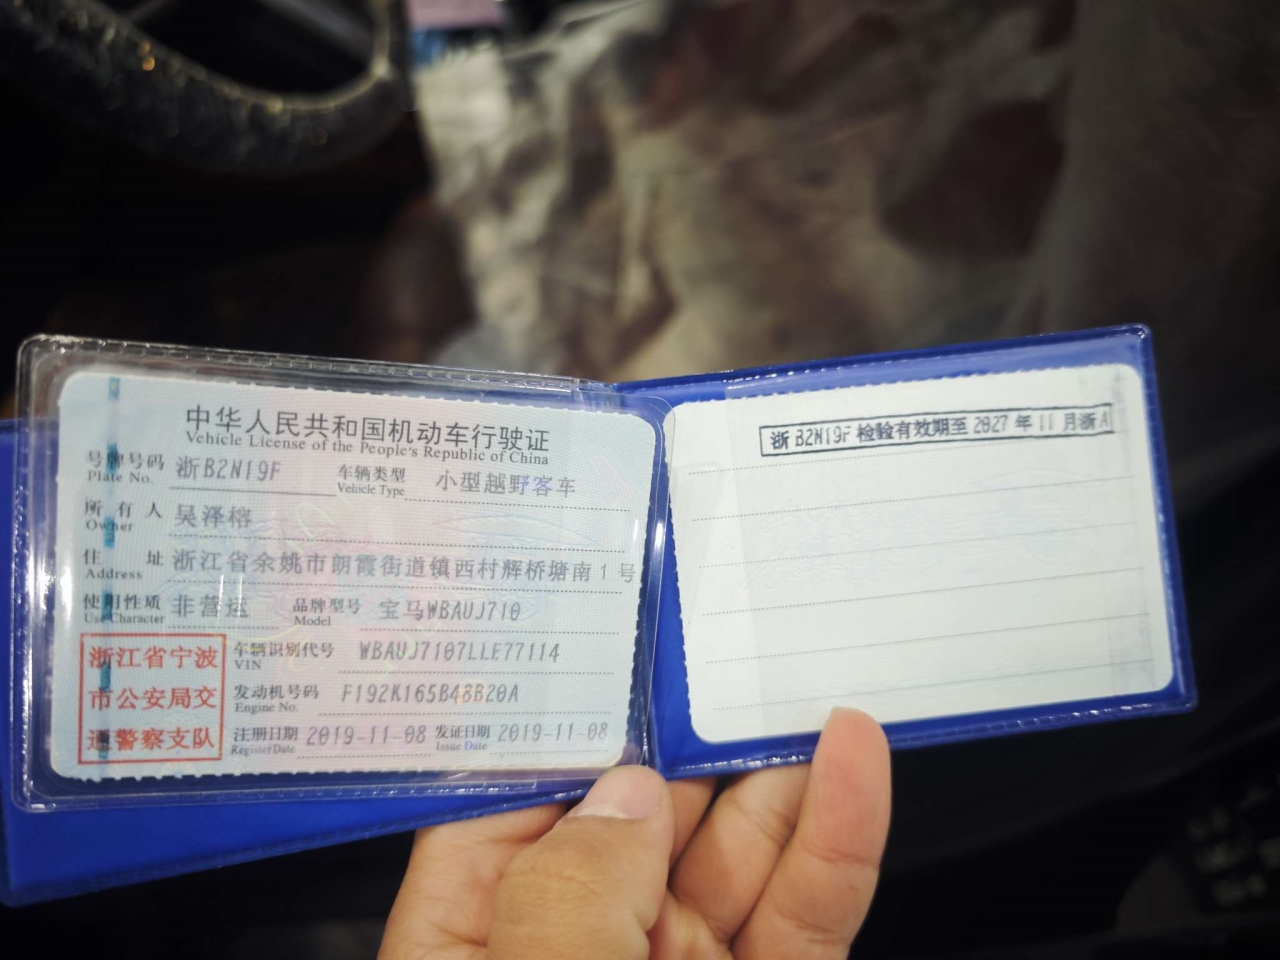 中华人民共和国机动车行驶证
Vehicle License of the People's Republic of China
号牌号码 浙B2N19F 车辆类型 小型越野客车
Plate No. Vehicle Type
所有人 吴泽榕
Owner
住址 浙江省余姚市朗霞街道镇西村辉桥塘南1号
Address
使用性质 非营运 品牌型号 宝马WBAUJ710
Use Character Model
浙江省宁波
市公安局交
通警察支队
车辆识别代号 WBAUJ7107LLE77114
VIN
发动机号码 F192K165B48B20A
Engine No.
注册日期 2019-11-08 发证日期 2019-11-08
Register Date Issue Date
浙B2N19F 检验有效期至2027年11月浙A